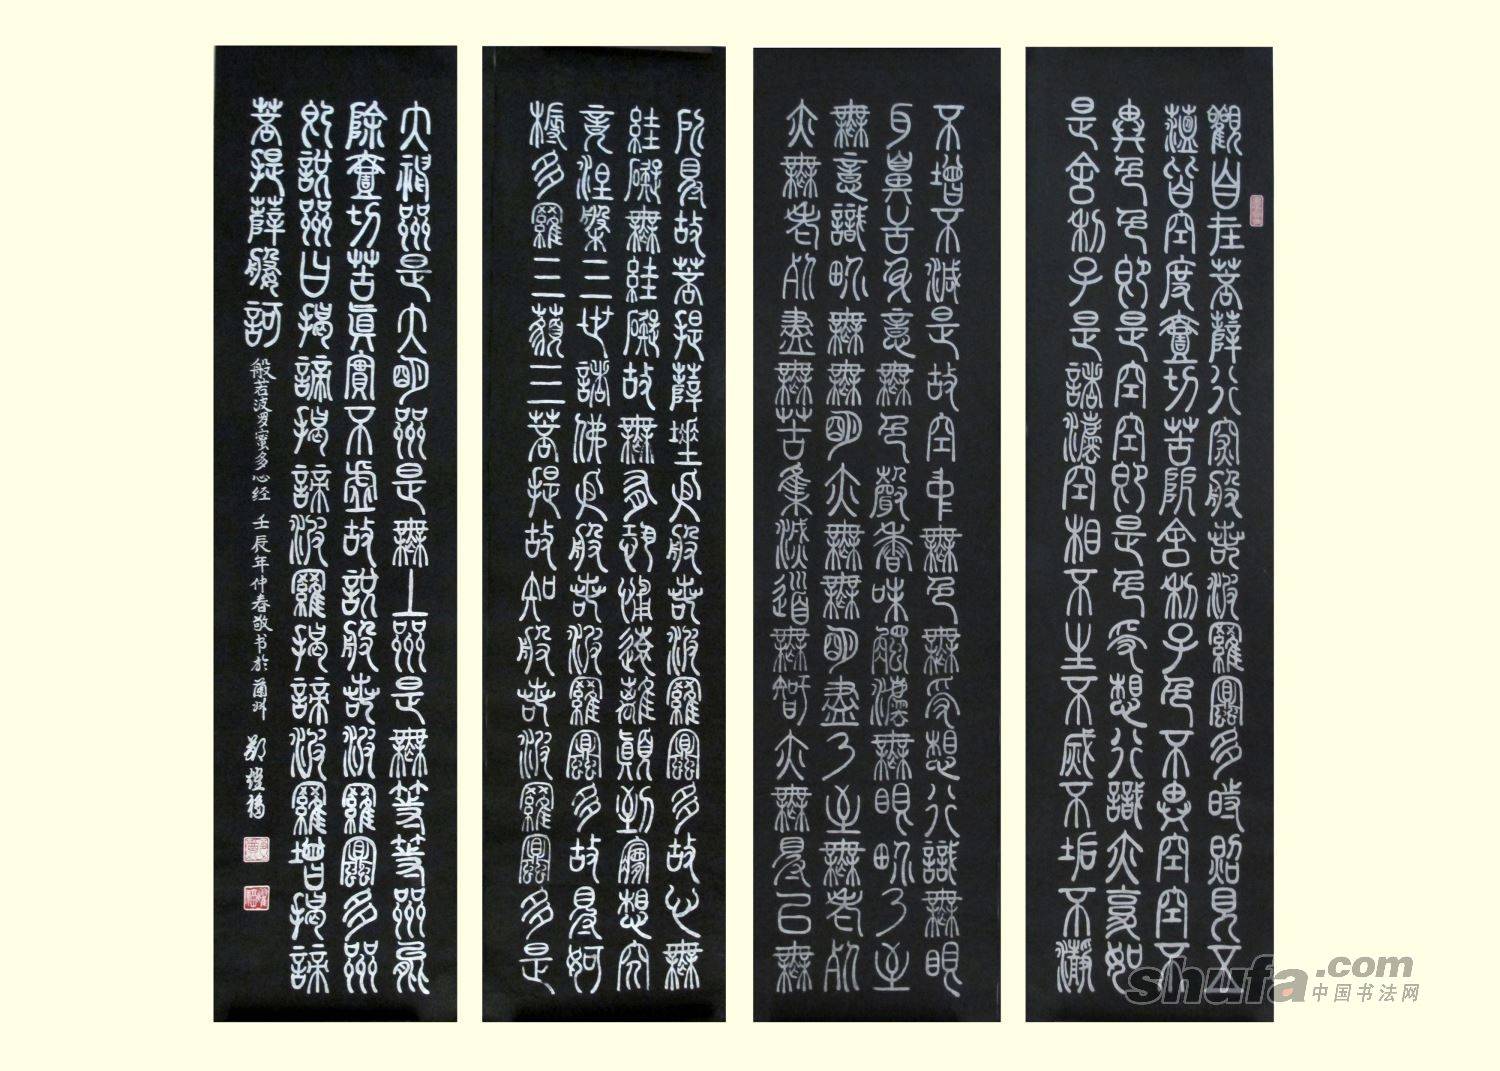 觀自在菩薩行深般若波羅蜜多時照見五
蘊皆空度壹切苦厄舍利子色不異空空不
異色色即是空空即是色受想行識亦復如
是舍利子是諸法空相不生不滅不垢不淨
不增不減是故空中無色無受想行識無眼
耳鼻舌身意無色聲香味觸法無眼界乃至
無意識界無無明亦無無明盡乃至無老死
亦無老死盡無苦集滅道無智亦無得以無
所得故菩提薩埵依般若波羅蜜多故心無
罣礙無罣礙故無有恐怖遠離顛倒夢想究
竟涅槃三世諸佛依般若波羅蜜多故得阿
耨多羅三藐三菩提故知般若波羅蜜多是
大神咒是大明咒是無上咒是無等等咒能
除壹切苦真實不虛故說般若波羅蜜多咒
即說咒曰揭諦揭諦波羅揭諦波羅僧揭諦
菩提薩婆訶
般若波罗蜜多心经 壬辰年仲春敬书於蘭州
shufa.com
中国书法网